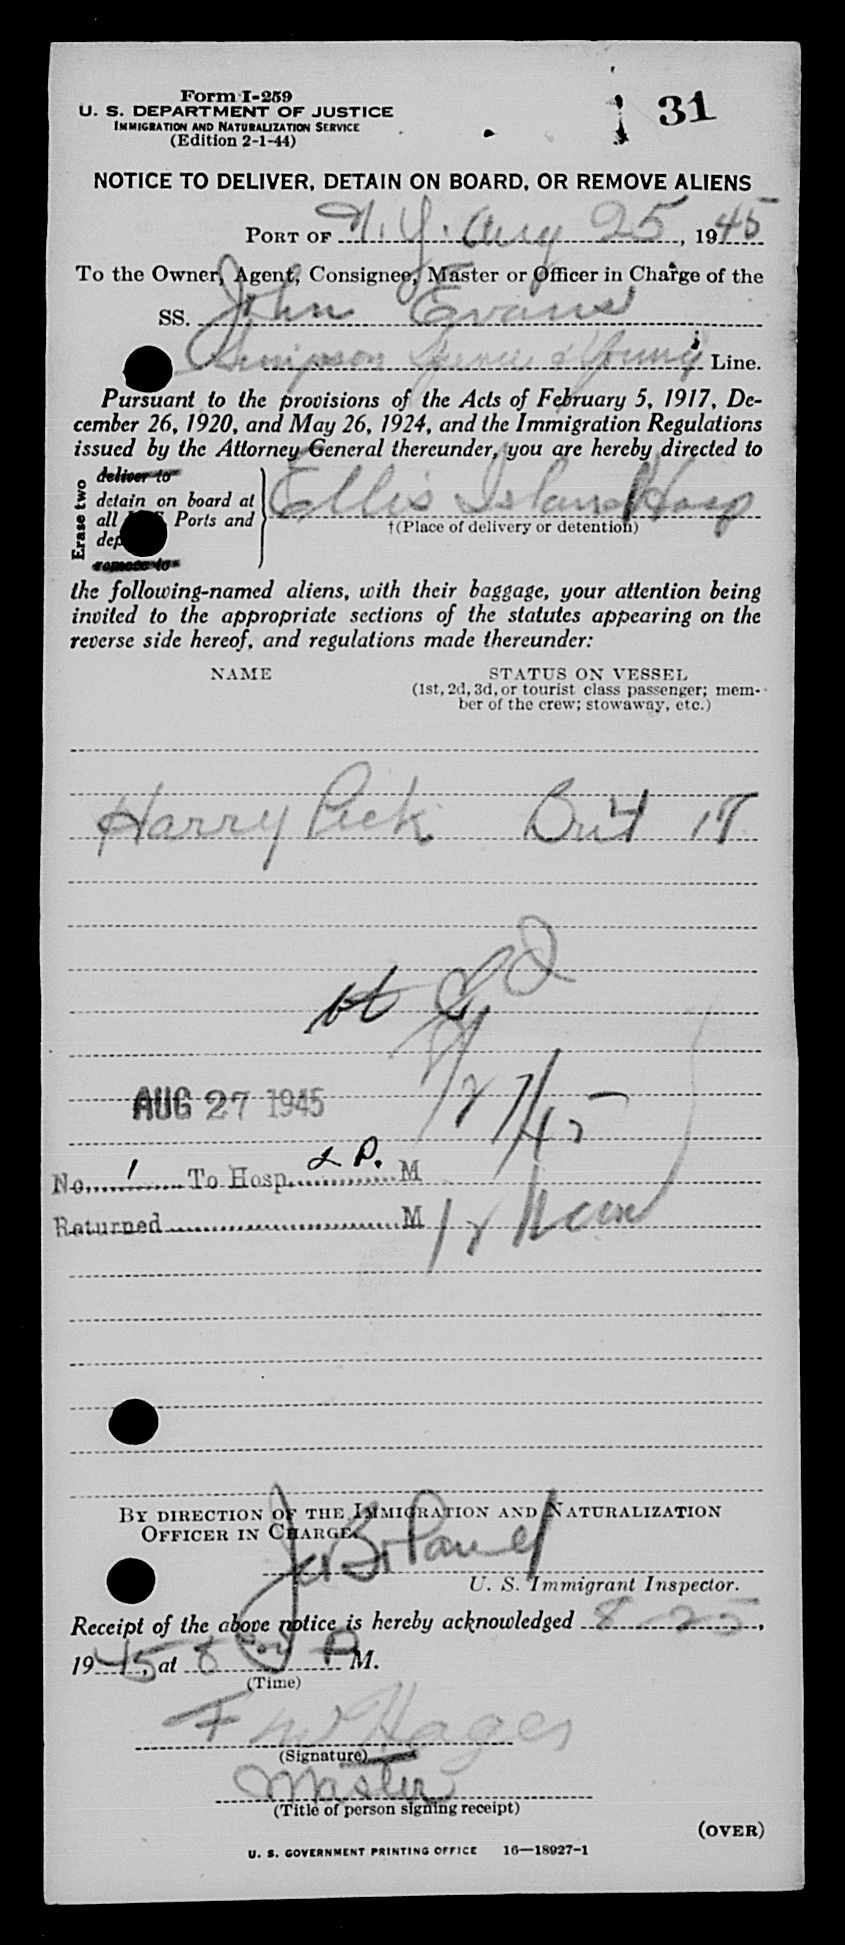 Form I-259
U. S. DEPARTMENT OF JUSTICE
IMMIGRATION AND NATURALIZATION SERVICE
(Edition 2-1-44)
31
NOTICE TO DELIVER, DETAIN ON BOARD, OR REMOVE ALIENS
PORT OF N. Y. Aug 25, 1945
To the Owner, Agent, Consignee, Master or Officer in Charge of the
SS. John Evans
Simpson Spence & Young Line.
Pursuant to the provisions of the Acts of February 5, 1917, De-
cember 26, 1920, and May 26, 1924, and the Immigration Regulations
issued by the Attorney General thereunder, you are hereby directed to
Erase two
deliver to
detain on board at
all Ports and
remove to
Ellis Island Hosp
†(Place of delivery or detention)
the following-named aliens, with their baggage, your attention being
invited to the appropriate sections of the statutes appearing on the
reverse side hereof, and regulations made thereunder:
NAME STATUS ON VESSEL
(1st, 2d, 3d, or tourist class passenger; mem-
ber of the crew; stowaway, etc.)
Harry Pick Brit 17
AUG 27 1945
8/27/45
No. 1 To Hosp. 2 P. M
Returned M
BY DIRECTION OF THE IMMIGRATION AND NATURALIZATION
OFFICER IN CHARGE.
U. S. Immigrant Inspector.
Receipt of the above notice is hereby acknowledged 8-25,
1945, at 8 P M.
(Time)
(Signature)
Master
(Title of person signing receipt)
(OVER)
U. S. GOVERNMENT PRINTING OFFICE 16—18927-1